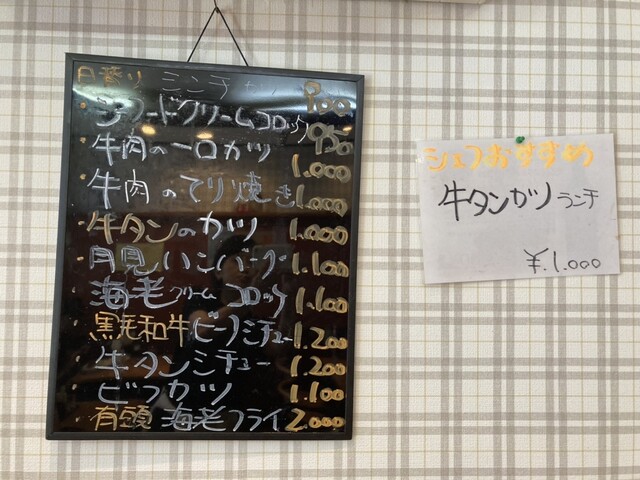 月替り ミンチカツ 900
・シーフードクリームコロッケ 950
・牛肉の一口カツ 1.000
・牛肉のてり焼き 1.000
・牛タンのカツ 1.000
・月見ハンバーグ 1.100
・海老クリームコロッケ 1.100
・黒毛和牛ビーフシチュー 1.200
・牛タンシチュー 1.200
・ビフカツ 1.100
・有頭海老フライ 2.000
シェフおすすめ
牛タンカツランチ
¥.1.000